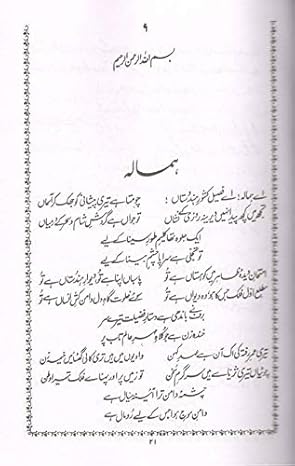 ۹
بسم اللہ الرحمن الرحیم
ہمالہ
اے ہمالہ! اے فصیلِ کشورِ ہندوستاں! چومتا ہے تیری پیشانی کو جھک کر آسماں
تجھ میں کچھ پیدا نہیں دیرینہ روزی کے نشاں تو جواں ہے گردشِ شام و سحر کے درمیاں
ایک جلوہ تھا کلیمِ طورِ سینا کے لیے
تو تجلی ہے سراپا چشمِ بینا کے لیے
امتحانِ دیدۂ ظاہر میں کوہستاں ہے تو پاسباں اپنا ہے تو، دیوارِ ہندوستاں ہے تو
مطلعِ اول فلک جس کا ہو وہ دیواں ہے تو سوئے خلوت گاہِ دل دامن کشِ انساں ہے تو
برف نے باندھی ہے دستارِ فضیلت تیرے سر
خندہ زن ہے جو کلاہِ مہرِ عالم تاب پر
تیری عمرِ رفتہ کی اک آن ہے عہدِ کہن وادیوں میں ہیں تری کالی گھٹائیں خیمہ زن
چوٹیاں تیری ثریا سے ہیں سرگرمِ سخن تو زمیں پر اور پہنائے فلک تیرا وطن
چشمۂ دامن ترا آئینۂ سیال ہے
دامنِ موجِ ہوا جس کے لیے رومال ہے
۲۱